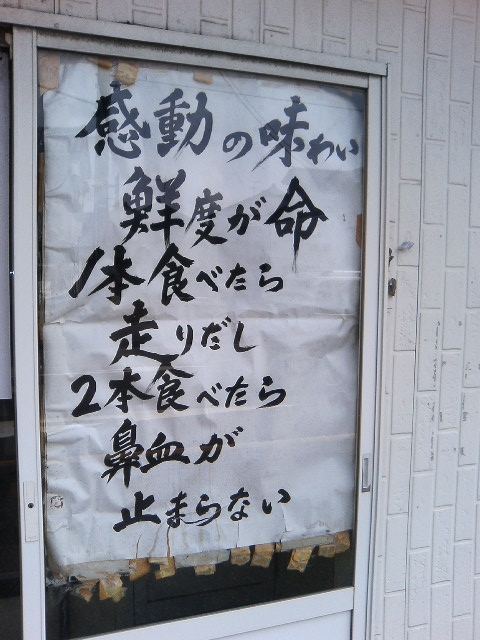 感動の味わい
鮮度が命
1本食べたら
走りだし
2本食べたら
鼻血が
止まらない